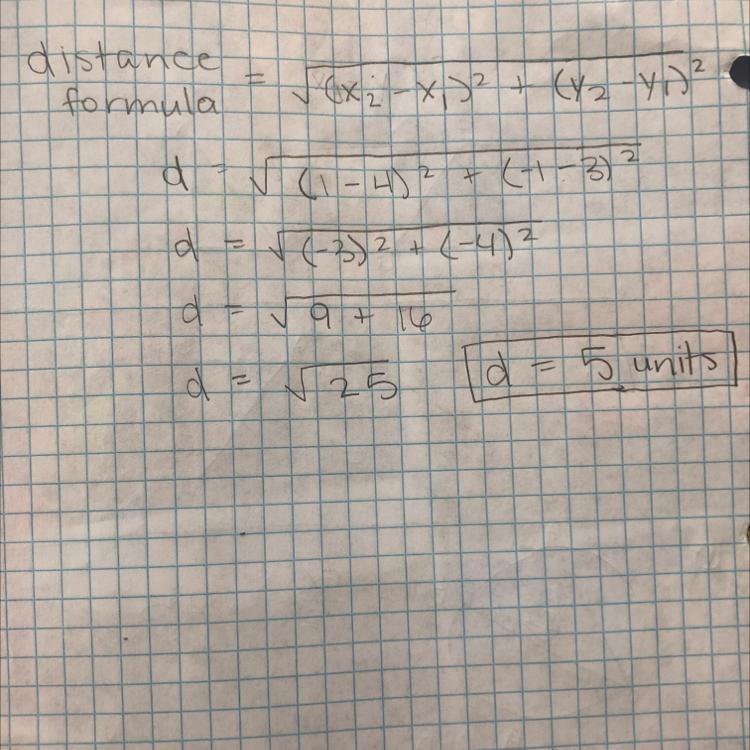 distance formula = √(x₂ - x₁)² + (y₂ - y₁)²
d = √(1 - 4)² + (-1 - 3)²
d = √(-3)² + (-4)²
d = √9 + 16
d = √25
d = 5 units